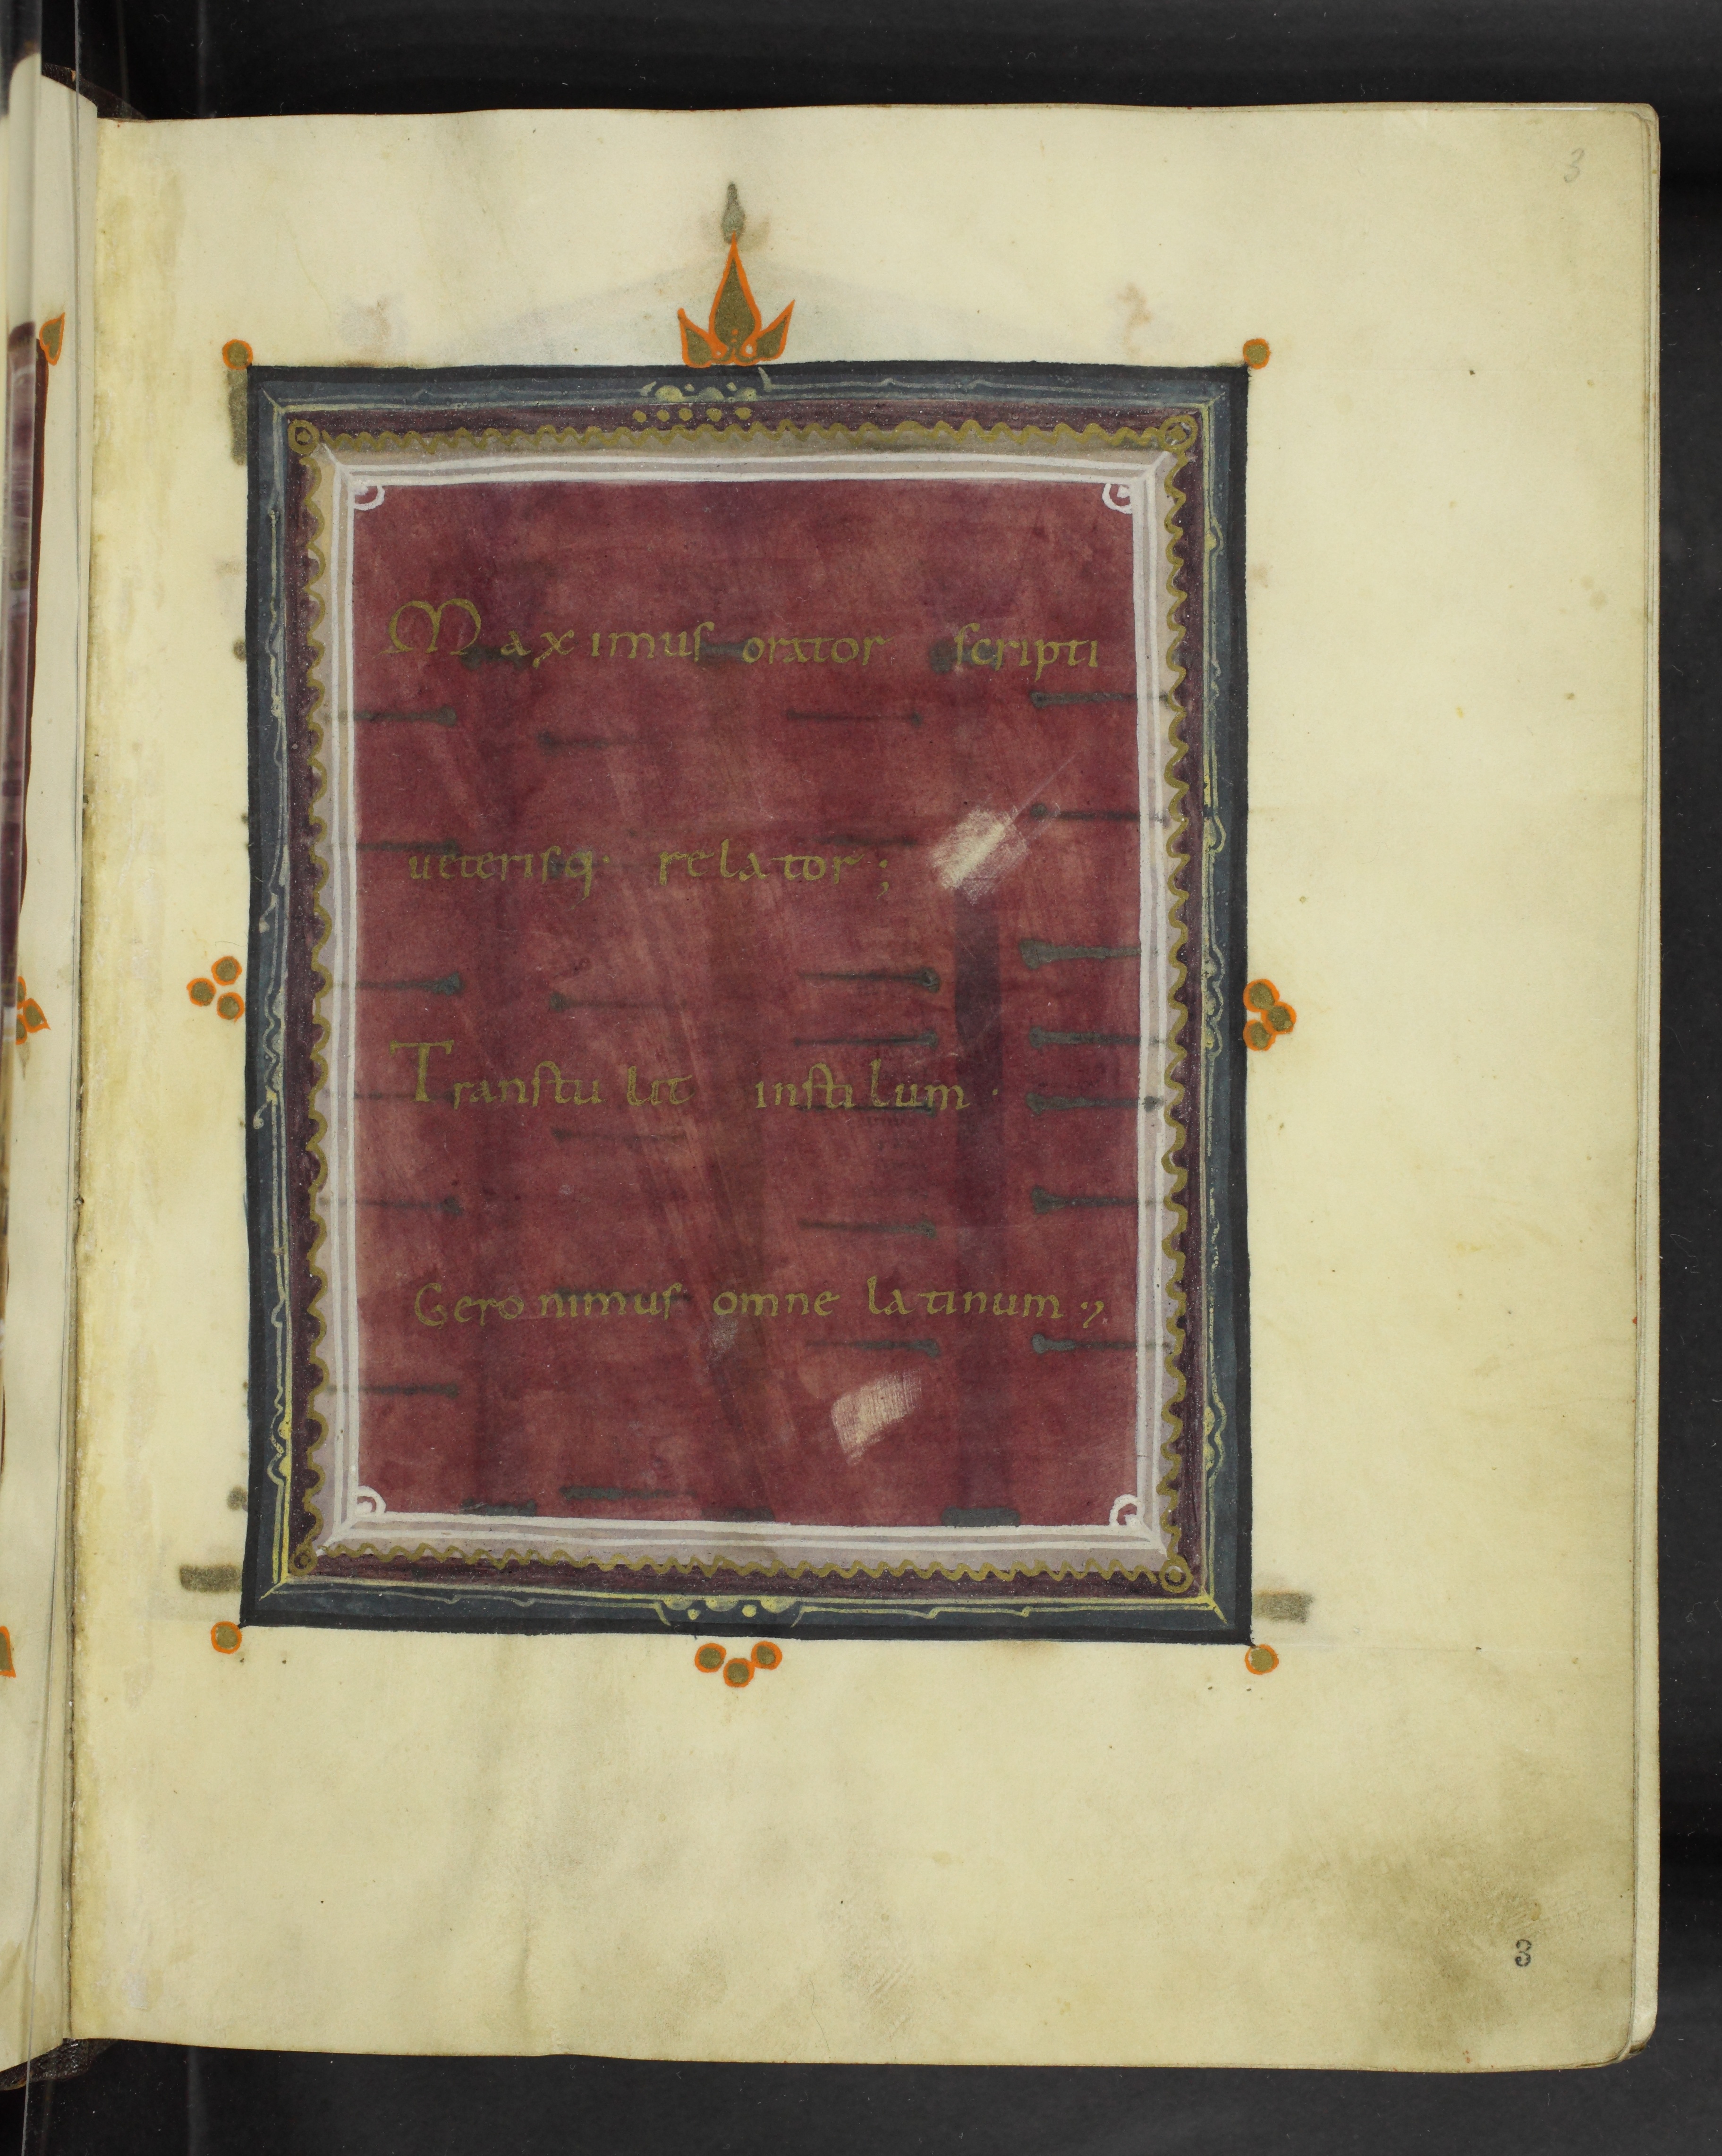 3
Maximus orator scripti
ueterisq· relator;
Transtulit instilum·
Geronimus omne latinum·,
3